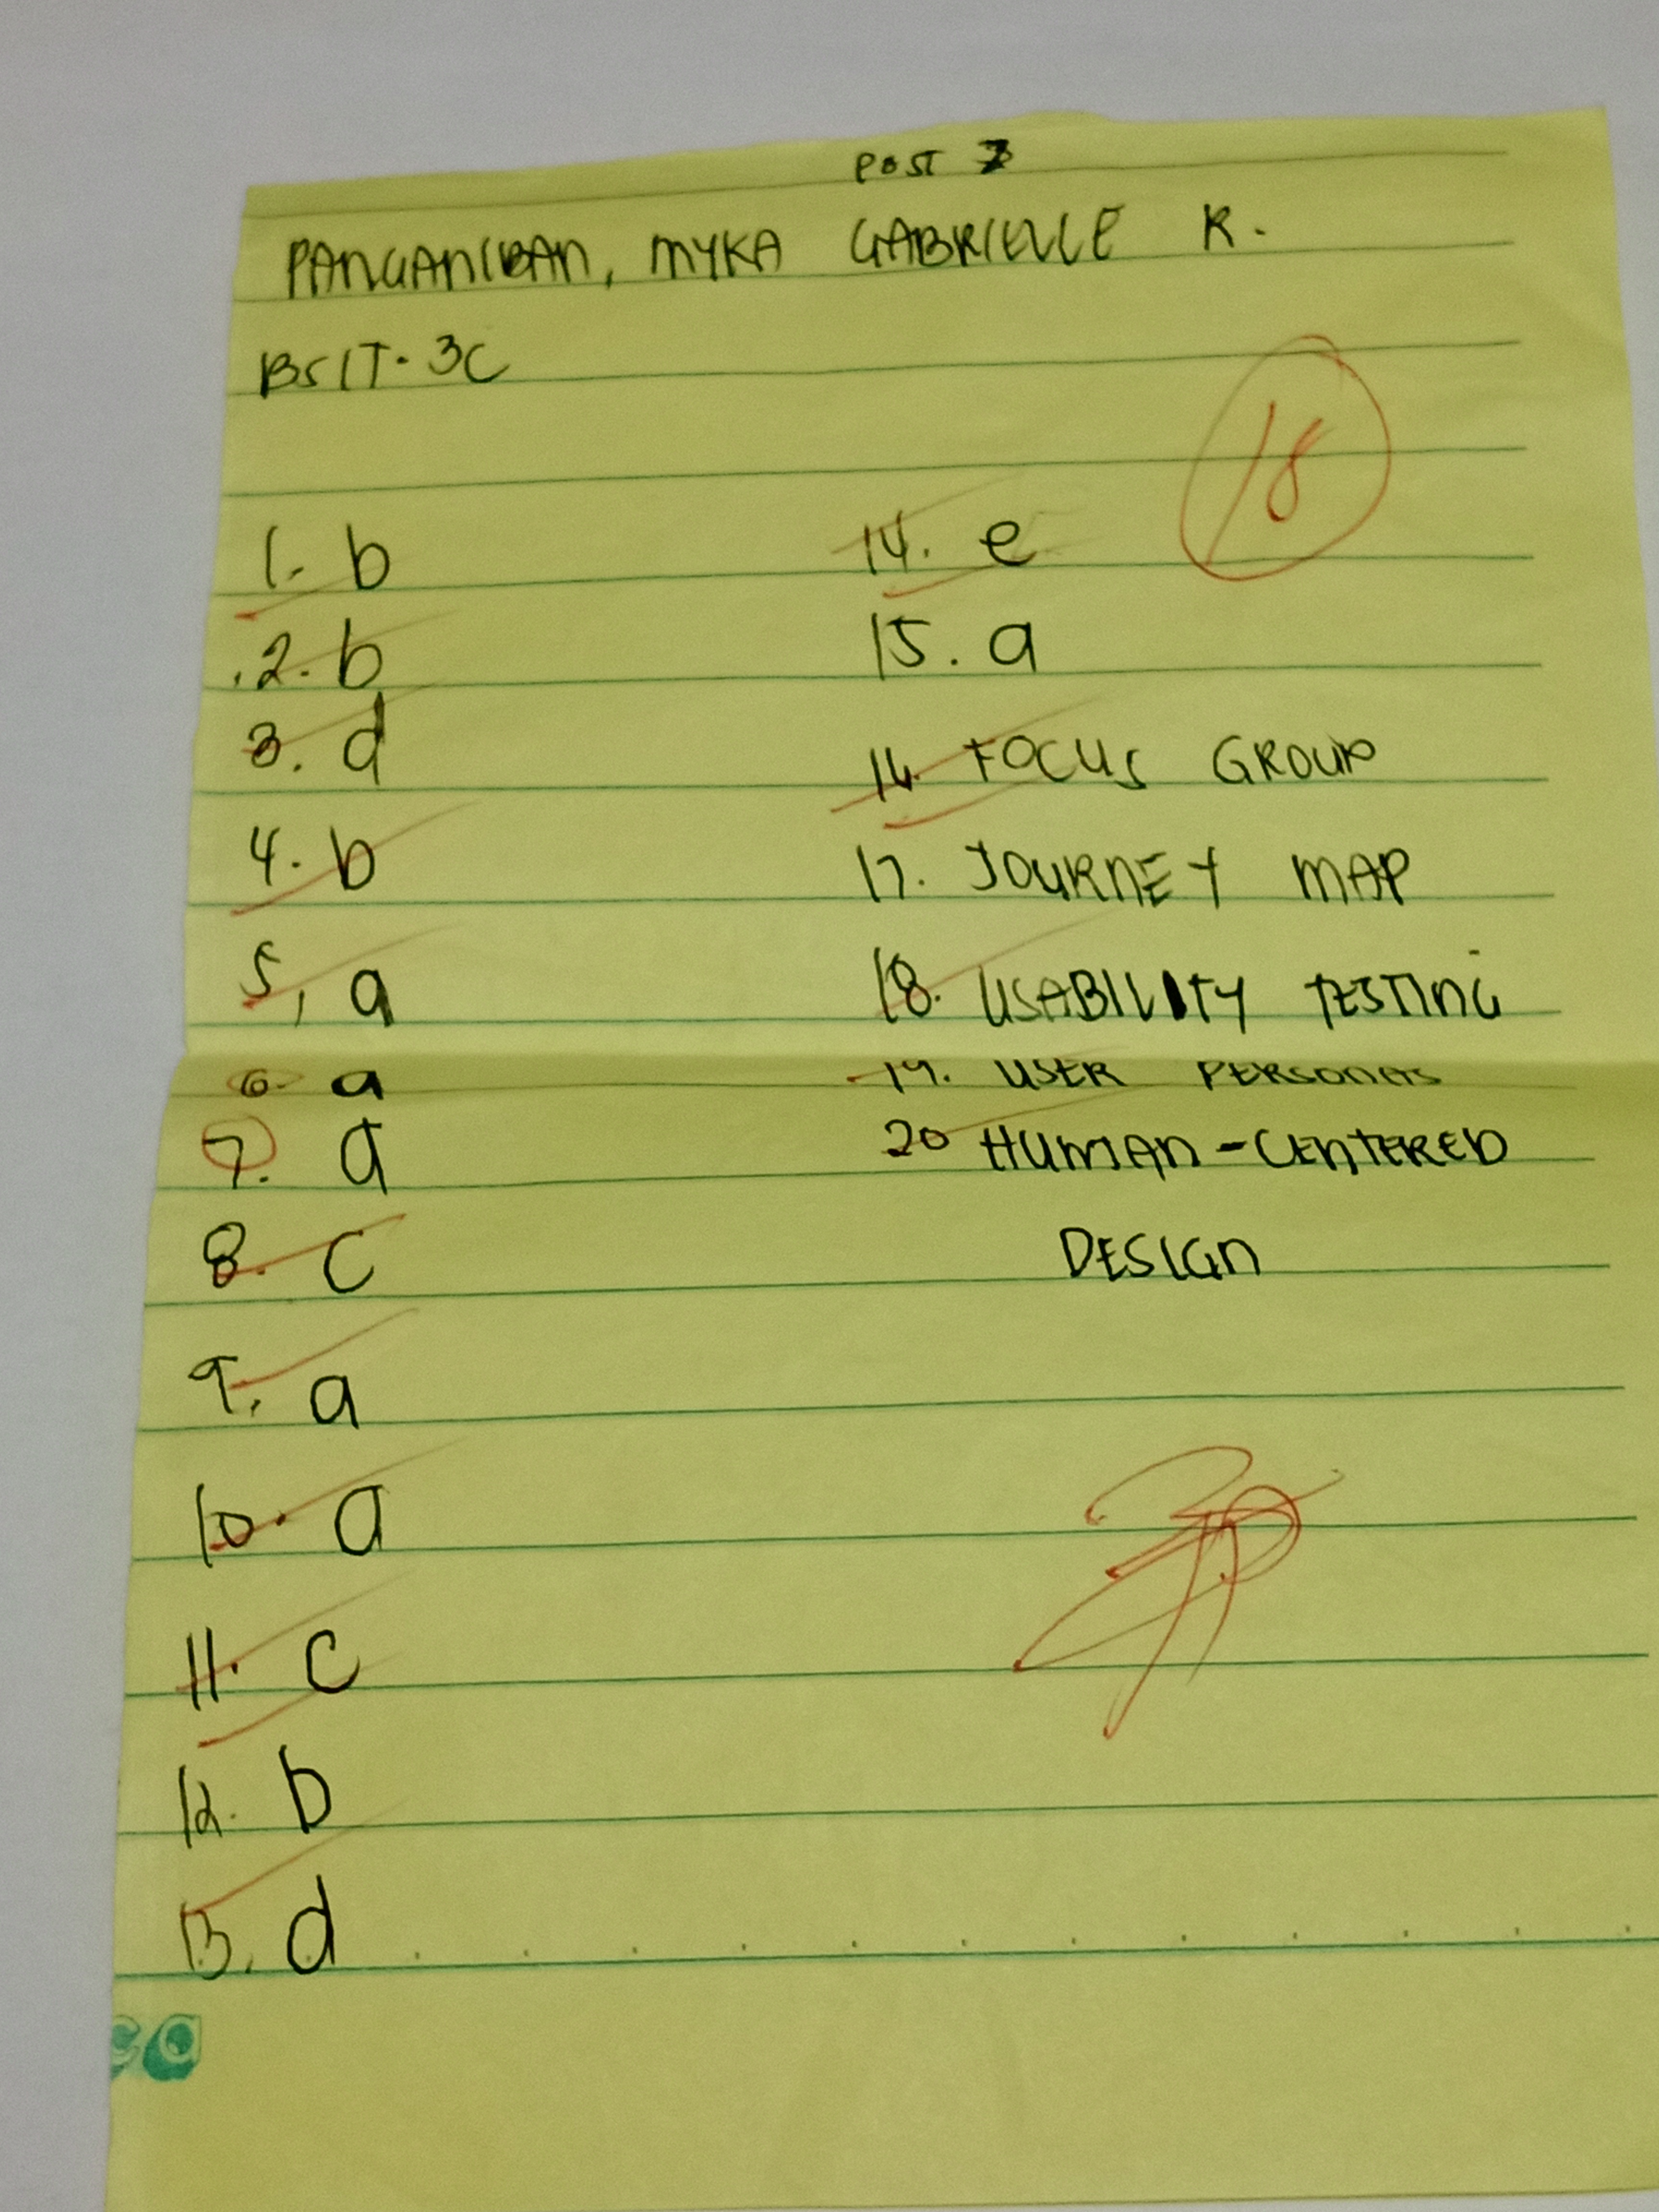 POST 7
PANGANIBAN, MYKA GABRIELLE R.
BSIT-3C
18
1. b
2. b
3. d
4. b
5, a
6. a
7. a
8. c
9. a
10. a
11. c
12. b
13. d
14. e
15. a
16. FOCUS GROUP
17. JOURNEY MAP
18. USABILITY TESTING
19. USER PERSONAS
20 HUMAN-CENTERED
DESIGN